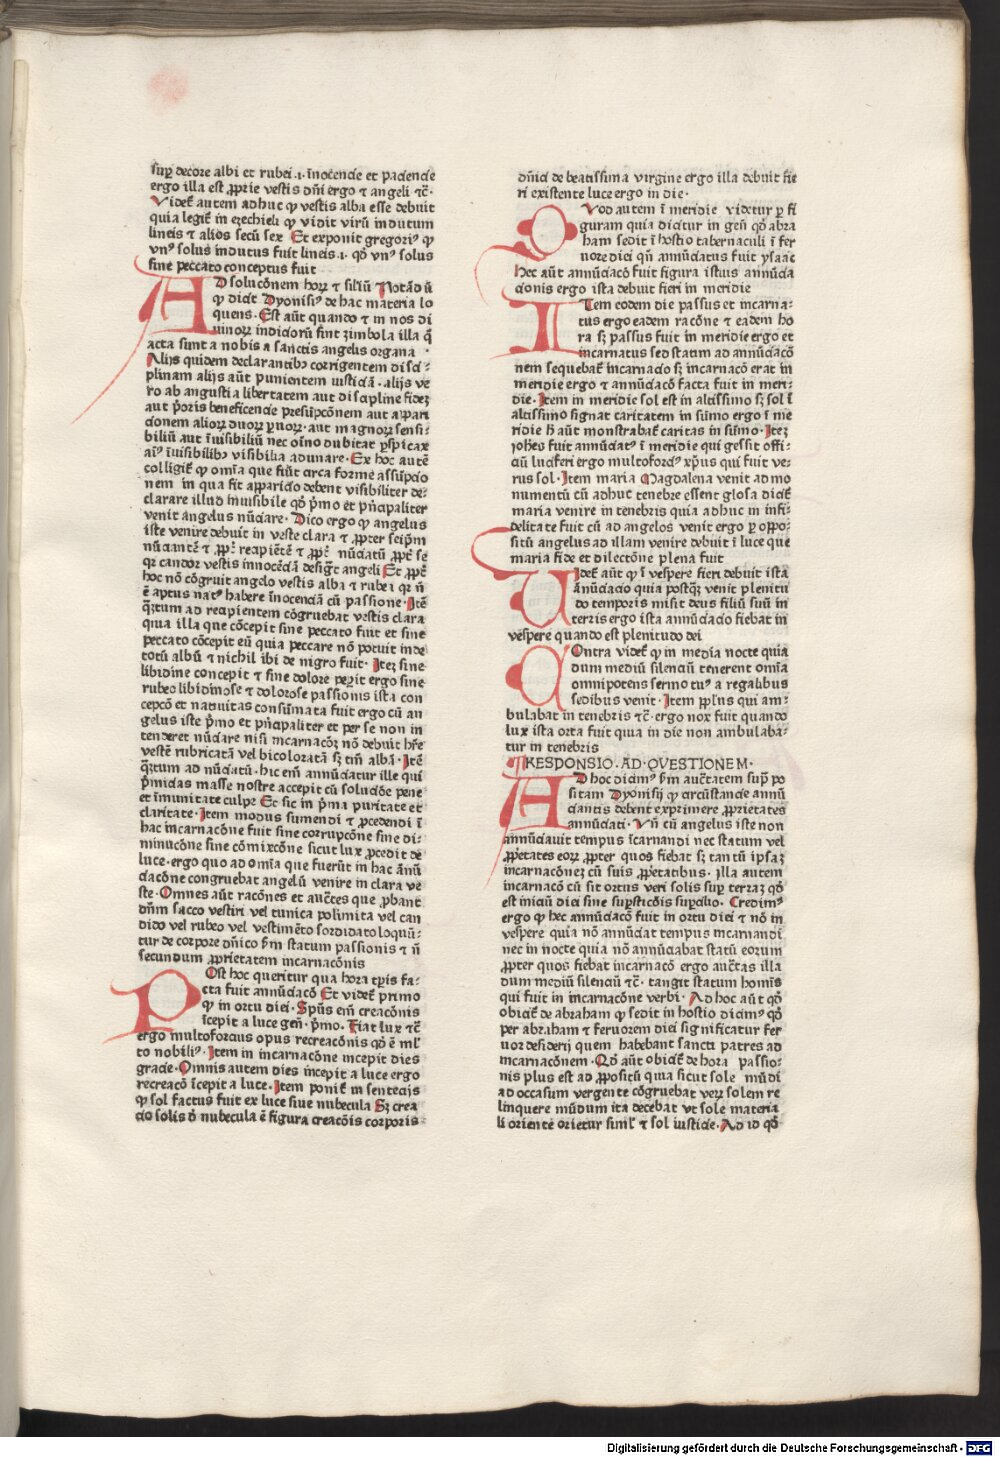 suꝑ decore albi et rubei .i. īnocencie et paciencie
ergo illa est ꝓprie vestis dn̄i ergo ⁊ angeli ⁊c̄·
Videt᷑ autem adhuc ꝙ vestis alba esse debuit
quia legit᷑ in ezechieli ꝙ vidit virū indutum
lineis ⁊ alios secū sex Et exponit gregoriꝰ ꝙ
vnꝰ solus indutus fuit lineis .i. qꝺ̄ vnꝰ solus
sine peccato conceptus fuit
AD solucōnem hoꝝ ⁊ siliū Notādū
ꝙ dicit Dyonisiꝰ de hac materia lo
quens· Est aūt quando ⁊ in nos di
uinoꝝ indiciorū sint zimbola illa q̄
acta sunt a nobis a sanctis angelis organa ·
Alijs quidem declarantibꝰ corrigentem disci-
plinam alijs aūt punientem iusticiā · alijs ve
ro ab angustia libertatem aut discipline fideꝫ
aut p̄oris beneficencie presūpcōnem aut appari
cionem alioꝝ duoꝝ ꝑuoꝝ· aut magnoꝝ sensi-
biliū aut īuisibiliū nec oīno dubitat ꝑspicax
aīꝰ īuisibilibꝰ visibilia adunare· Ex hoc autē
colligit᷑ ꝙ om̄ia que fiūt circa forme assūpcio
nem in qua fit apparicio debent visibiliter de-
clarare illud inuisibile qꝺ̄ p̄mo et pn̄cipaliter
venit angelus nūciare· Dico ergo ꝙ angelus
iste venire debuit in veste clara ⁊ ꝓpter seip̄m
nūciantē ⁊ ꝓpt᷑ recipiētē ⁊ ꝓpt᷑ nūciatū ꝓpt᷑ se
qꝛ candor vestis innocēciā desigt᷑ angeli Et ꝓpt᷑
hoc nō cōgruit angelo vestis alba ⁊ rubei qꝛ n̄
ē aptus natꝰ habere īnocenciā cū passione· Itē
q̄ntum ad recipientem cōgruebat vestis clara
quia illa que cōcepit sine peccato fuit et sine
peccato cōcepit eū quia peccare nō potuit inde
totū albū ⁊ nichil ibi de nigro fuit· Iteꝫ sine
libidine concepit ⁊ sine dolore peꝑit ergo sine
rubeo libidinose ⁊ dolorose passionis ista con
cepcō et natiuitas consūmata fuit ergo cū an
gelus iste p̄mo et pn̄cipaliter et per se non in
tenderet nūciare nisi incarnacōꝫ nō debuit hr̄e
vestē rubricatā vel bicoloratā sꝫ tm̄ albā· Itē
q̄ntum ad nūciatū· hic em̄ annūciatur ille qui
p̄micias masse nostre accepit cū solucōe pene
et īmunitate culpe Et sic in p̄ma puritate et
claritate· Item modus sumendi ⁊ ꝓcedendi ī
hac incarnacōne fuit sine corrupcōne sine di-
minucōne sine cōmixcōne sicut lux ꝓcedit de
luce· ergo quo ad om̄ia que fuerūt in hac ānū
ciacōne congruebat angelū venire in clara ve
ste· Omnes aūt racōnes et auctes que ꝓbant
dn̄m sacco vestiri vel tunica polimita vel can
dido vel rubeo vel vestimēto sordidato loquū-
tur de corpore dn̄ico ẜm statum passionis ⁊ n̄
secundum ꝓprietatem incarnacōnis
POst hoc queritur qua hora tꝑis fa-
cta fuit annūciacō Et videt᷑ primo
ꝙ in ortu diei· Spūs em̄ creacōnis
īcepit a luce gen̄· p̄mo· Fiat lux ⁊c̄
ergo multoforcius opus recreacōnis qꝺ̄ ē ml᷑
to nobiliꝰ· Item in incarnacōne incepit dies
gracie· Omnis autem dies incepit a luce ergo
recreacō īcepit a luce· Item ponit᷑ in sentecijs
ꝙ sol factus fuit ex luce siue nubecula Sꝫ crea
cio solis ꝺ̄ nubecula ē figura creacōis corporis
dn̄ici de beatissima virgine ergo illa debuit fie
ri existente luce ergo in die·
QVod autem ī meridie videtur ꝑ fi
guram quia dicitur in gen̄ qꝺ̄ abra
ham sedit ī hostio tabernaculi ī fer
uore diei qn̄ annūciatus fuit ysaac
Hec aūt annūciacō fuit figura istius annūcia
cionis ergo ista debuit fieri in meridie
ITem eodem die passus et incarna-
tus ergo eadem racōne ⁊ eadem ho
ra sꝫ passus fuit in meridie ergo et
incarnatus sed statim ad annūciacō
nem sequebat᷑ incarnacio sꝫ incarnacō erat in
meridie ergo ⁊ annūciacō facta fuit in meri-
die· Item in meridie sol est in altissimo sꝫ sol ī
altissimo signat caritatem in sūmo ergo ī me
ridie h̄ aūt monstrabat᷑ caritas in sūmo· Iteꝫ
joh̄es fuit annūciatꝰ ī meridie qui gessit offi-
ciū luciferi ergo multoforciꝰ xp̄us qui fuit ve-
rus sol· Item maria Magdalena venit ad mo
numentū cū adhuc tenebre essent glosa dicit᷑
maria venire in tenebris quia adhuc in infi-
delitate fuit cū ad angelos venit ergo ꝑ oppo-
sitū angelus ad illam venire debuit ī luce que
maria fide et dilectōne plena fuit
VIdet᷑ aūt ꝙ ī vespere fieri debuit ista
ānūciacio quia postqꝫ venit plenitu
do temporis misit deus filiū suū in
terris ergo ista annūciacio fiebat in
vespere quando est plenitudo dei
COntra videt᷑ ꝙ in media nocte quia
dum mediū silenciū tenerent om̄ia
omnipotens sermo tuꝰ a regalibus
sedibus venit· Item pp̄lus qui am-
bulabat in tenebris ⁊c̄· ergo nox fuit quando
lux ista orta fuit qua in die non ambulaba-
tur in tenebris
RESPONSIO· AD· QVESTIONEM·
AD hoc dicimꝰ ẜm auctatem suꝑ po
sitam Dyonisij ꝙ circūstancie annū
ciantis debent exprimere ꝓprietates
annūciati· Vn̄ cū angelus iste non
annūciauit tempus īcarnandi nec statum vel
ꝓpͥetates eoꝝ ꝓpter quos fiebat sꝫ tantū ipsaꝫ
incarnacōneꝫ cū suis ꝓpͥetatibus· Illa autem
incarnacō cū sit ortus veri solis suꝑ terraꝫ qꝺ̄
est iniciū diei sine suꝑsticōis suꝑcilio· Credimꝰ
ergo ꝙ hec annūciacō fuit in ortu diei ⁊ nō in
vespere quia nō annūciat tempus incarnandi
nec in nocte quia nō annūciabat statū eorum
ꝓpter quos fiebat incarnacō ergo auctas illa
dum mediū silenciū ⁊c̄· tangit statum homīs
qui fuit in incarnacōne verbi· Ad hoc aūt qꝺ̄
obicit᷑ de abraham ꝙ sedit in hostio dicimꝰ qꝺ̄
per abraham ⁊ feruorem diei significatur fer
uor desiderij quem habebant sancti patres ad
incarnacōnem· Qꝺ̄ aūt obicit᷑ de hora passio-
nis plus est ad ꝓpositū quia sicut sole mūdi
ad occasum vergente cōgruebat veꝝ solem re
linquere mūdum ita decebat vt sole materia
li oriente orietur simil᷑ ⁊ sol iusticie· Ad id qꝺ̄
Digitalisierung gefördert durch die Deutsche Forschungsgemeinschaft - DFG